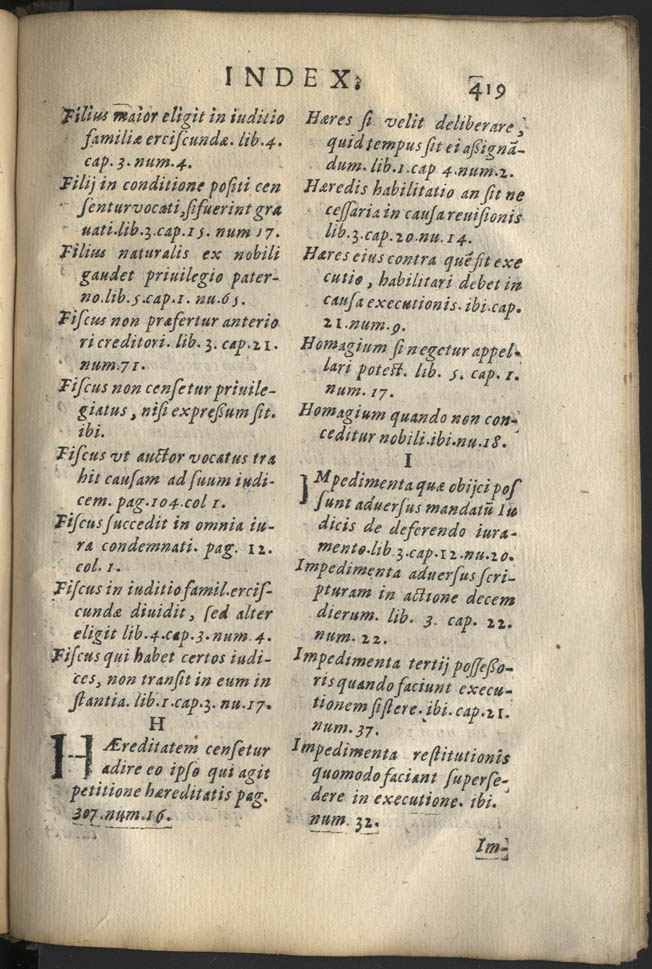 INDEX.
419
Filius maior eligit in iuditio
familiæ erciſcundæ. lib. 4.
cap. 3. num. 4.
Filij in conditione poſiti cen
ſentur vocati, ſi fuerint gra
uati. lib. 3. cap. 15. num 17.
Filius naturalis ex nobili
gaudet priuilegio pater-
no. lib. 5. cap. 1. nu. 65.
Fiſcus non præfertur anterio
ri creditori. lib. 3. cap. 21.
num. 71.
Fiſcus non cenſetur priuile-
giatus, niſi expreſſum ſit.
ibi.
Fiſcus vt auctor vocatus tra
hit cauſam ad ſuum iudi-
cem. pag. 104. col 1.
Fiſcus ſuccedit in omnia iu-
ra condemnati. pag. 12.
col. 1.
Fiſcus in iuditio famil. erciſ-
cundæ diuidit, ſed alter
eligit lib. 4. cap. 3. num. 4.
Fiſcus qui habet certos iudi-
ces, non tranſit in eum in
ſtantia. lib. 1. cap. 3. nu. 17.
H
HÆreditatem cenſetur
adire eo ipſo qui agit
petitione hæreditatis pag.
307. num. 16.
Hæres ſi velit deliberare,
quid tempus ſit ei aſſignã-
dum. lib. 1. cap 4. num. 2.
Hæredis habilitatio an ſit ne
ceſſaria in cauſa reuiſionis
lib. 3. cap. 20. nu. 14.
Hæres eius contra quẽ ſit exe
cutio, habilitari debet in
cauſa executionis. ibi. cap.
21. num. 9.
Homagium ſi negetur appel-
lari poteſt. lib. 5. cap. 1.
num. 17.
Homagium quando non con-
ceditur nobili. ibi. nu. 18.
I
IMpedimenta quæ obijci poſ
ſunt aduerſus mandatũ Iu
dicis de deferendo iura-
mento. lib. 3. cap. 12. nu. 20.
Impedimenta aduerſus ſcri-
pturam in actione decem
dierum. lib. 3. cap. 22.
num. 22.
Impedimenta tertij poſſeſſo-
ris quando faciunt execu-
tionem ſiſtere. ibi. cap. 21.
num. 37.
Impedimenta reſtitutionis
quomodo faciant ſuperſe-
dere in executione. ibi.
num. 32.
Im-